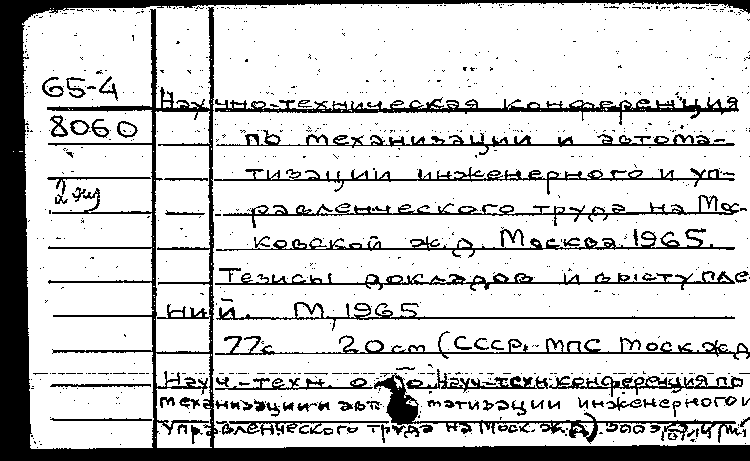 65-4
Научно-техническая конференция
8060
по механизации и автома-
тизации инженерного и уп-
2 экз
равленческого труда на Мос-
ковской ж.д. Москва. 1965.
Тезисы докладов и выступле
ний. М, 1965
77с 20 см (СССР. МПС Моск. ж.д
Науч.-техн. о-во. Науч.-техн. конференция по
механизации и авт матизации инженерного и
управленческого труда на Моск. ж.д)